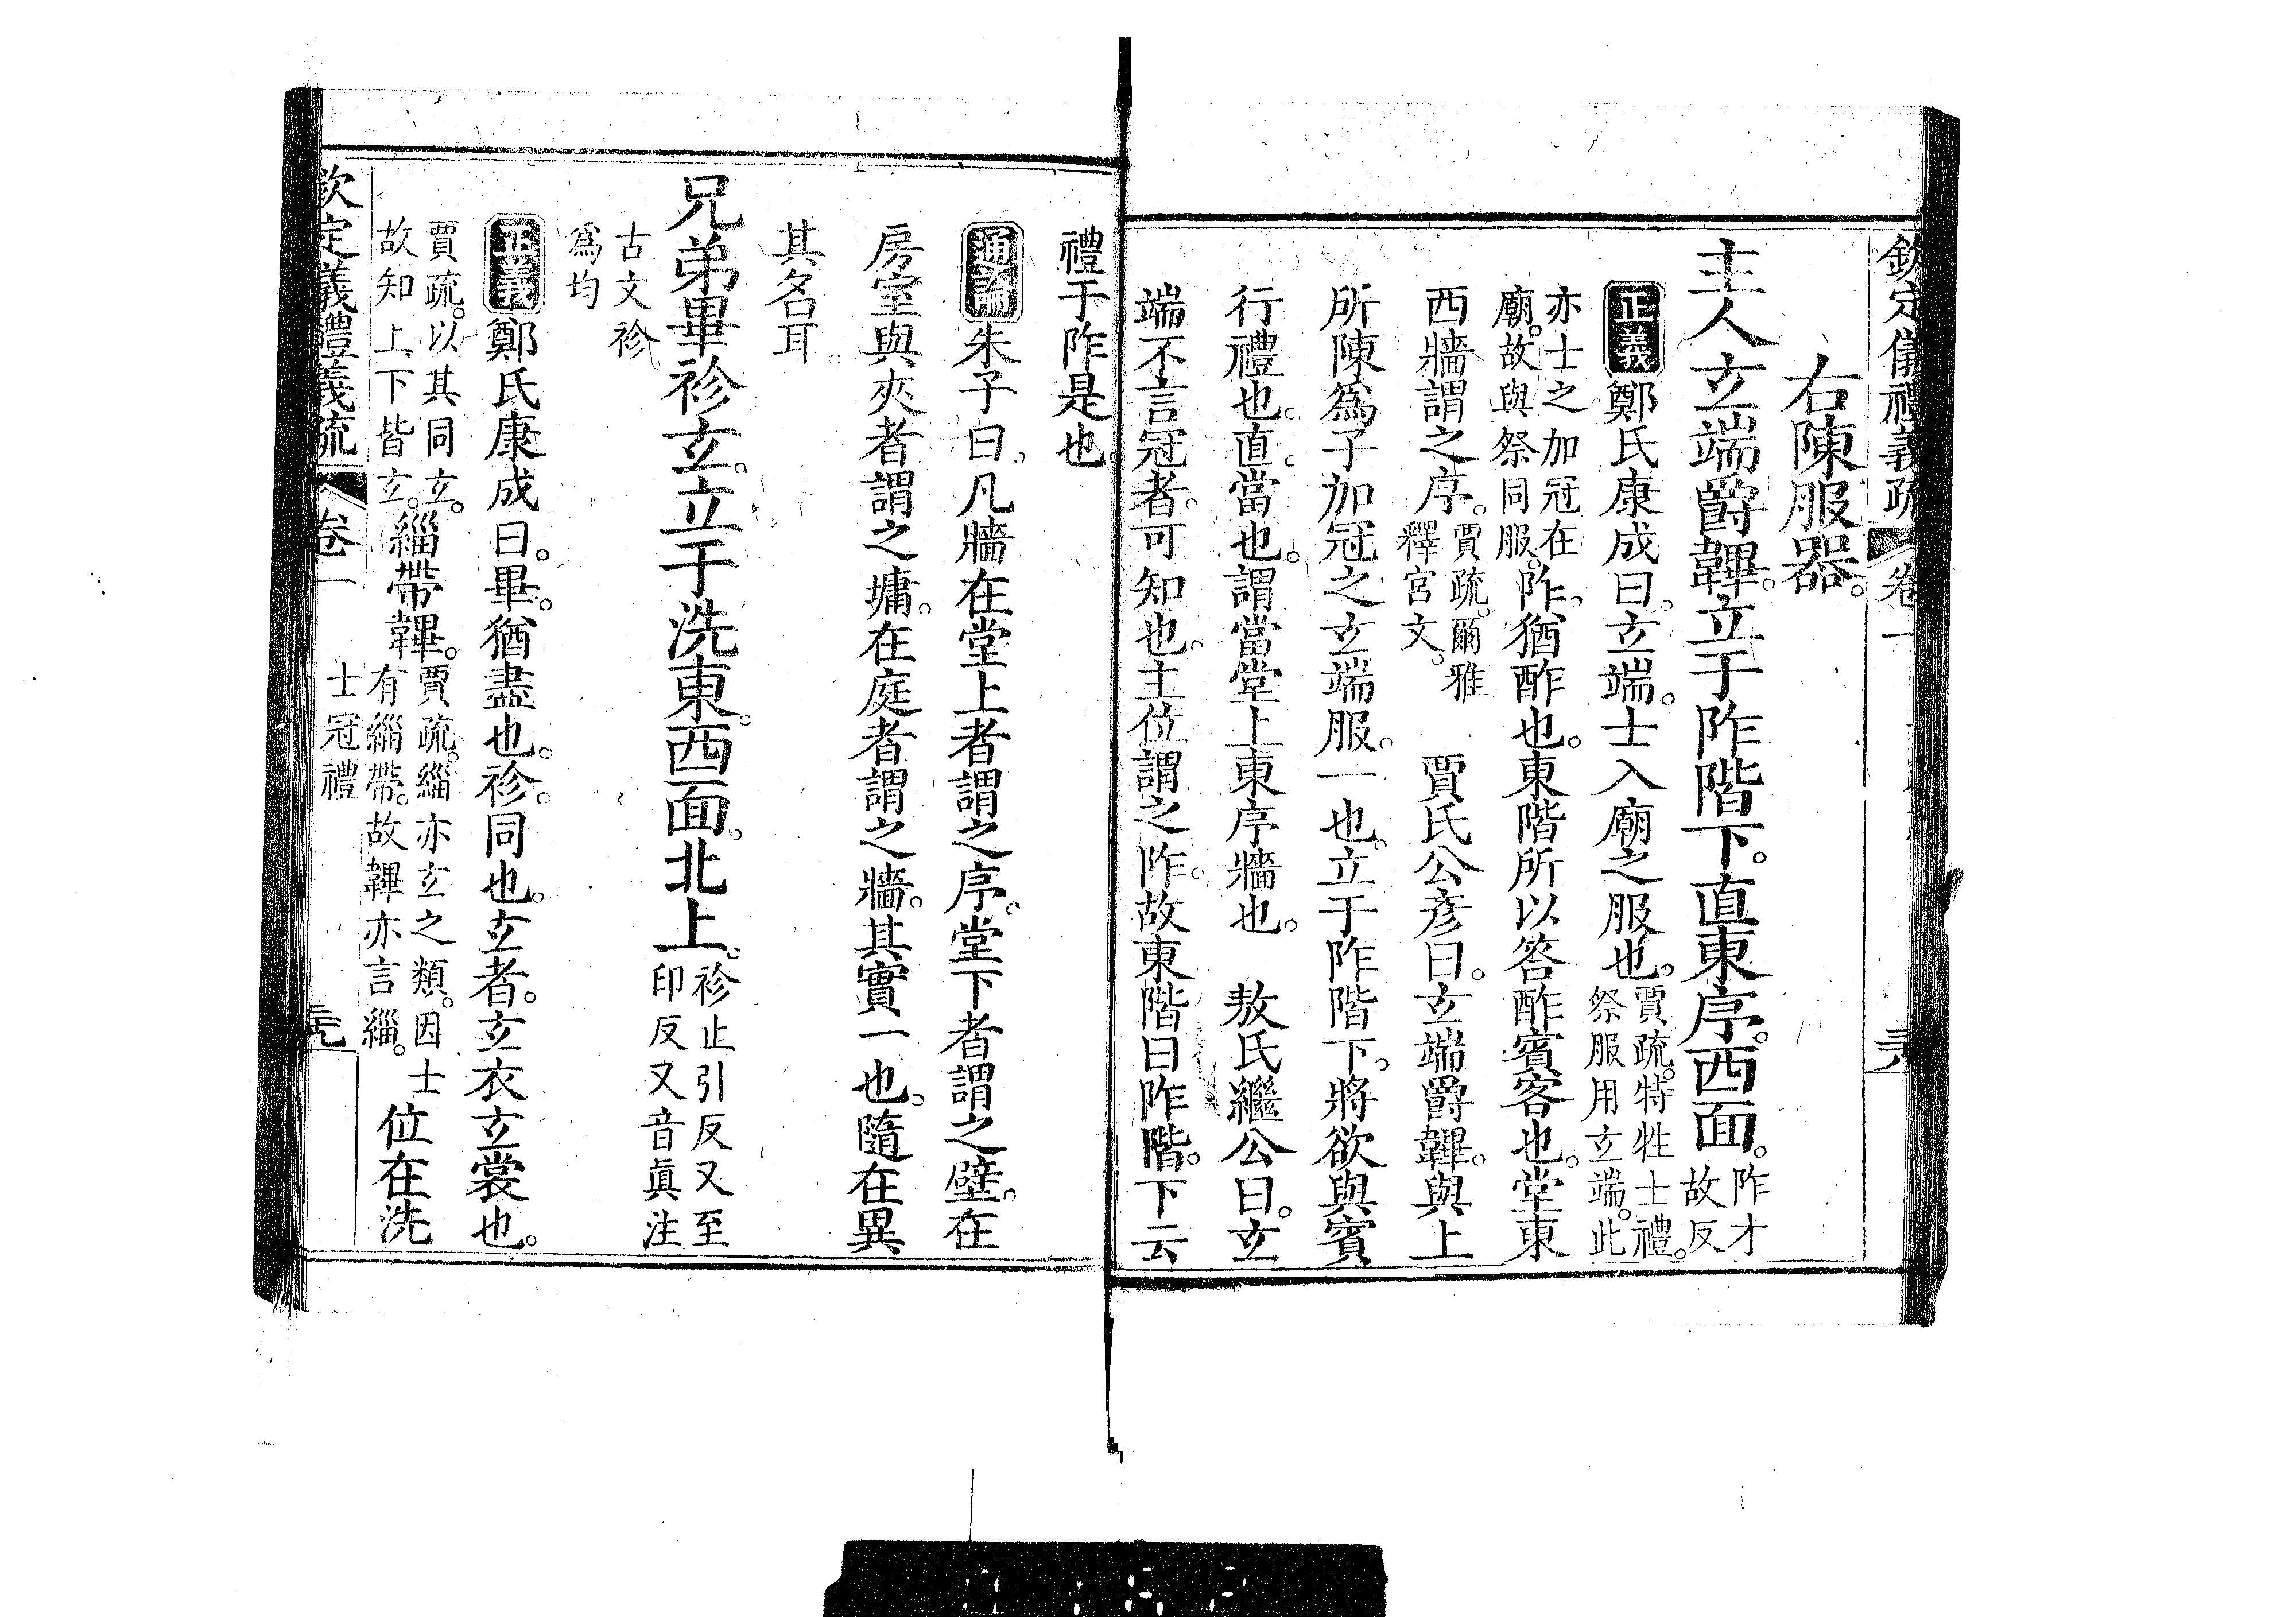 欽定儀禮義疏 卷一
右陳服器。
主人玄端爵韠。立于阼階下。直東序。西面。阼才故反
正義 鄭氏康成曰。玄端。士入廟之服也。賈疏。特牲士禮。祭服用玄端。此
亦士之加冠在廟。故與祭同服。阼。猶酢也。東階所以答酢賓客也。堂東
西牆謂之序。賈疏。爾雅釋宮文。 賈氏公彥曰。玄端爵韠。與上
所陳爲子加冠之玄端服。一也。立于阼階下。將欲與賓
行禮也。直。當也。謂當堂上東序牆也。 敖氏繼公曰。玄
端不言冠者。可知也。主位謂之阼。故東階曰阼階。下云
禮于阼是也。
通論 朱子曰。凡牆在堂上者謂之序。堂下者謂之壁。在
房室與夾者謂之墉。在庭者謂之牆。其實一也。隨在異
其名耳。
兄弟畢袗玄。立于洗東。西面。北上。袗止引反又至印反又音眞注
古文袗爲均
正義 鄭氏康成曰。畢。猶盡也。袗。同也。玄者。玄衣玄裳也。
賈疏。以其同玄。故知上下皆玄。緇帶韠。賈疏。緇亦玄之類。因士有緇帶。故韠亦言緇。位在洗
欽定義禮義疏 卷一 士冠禮